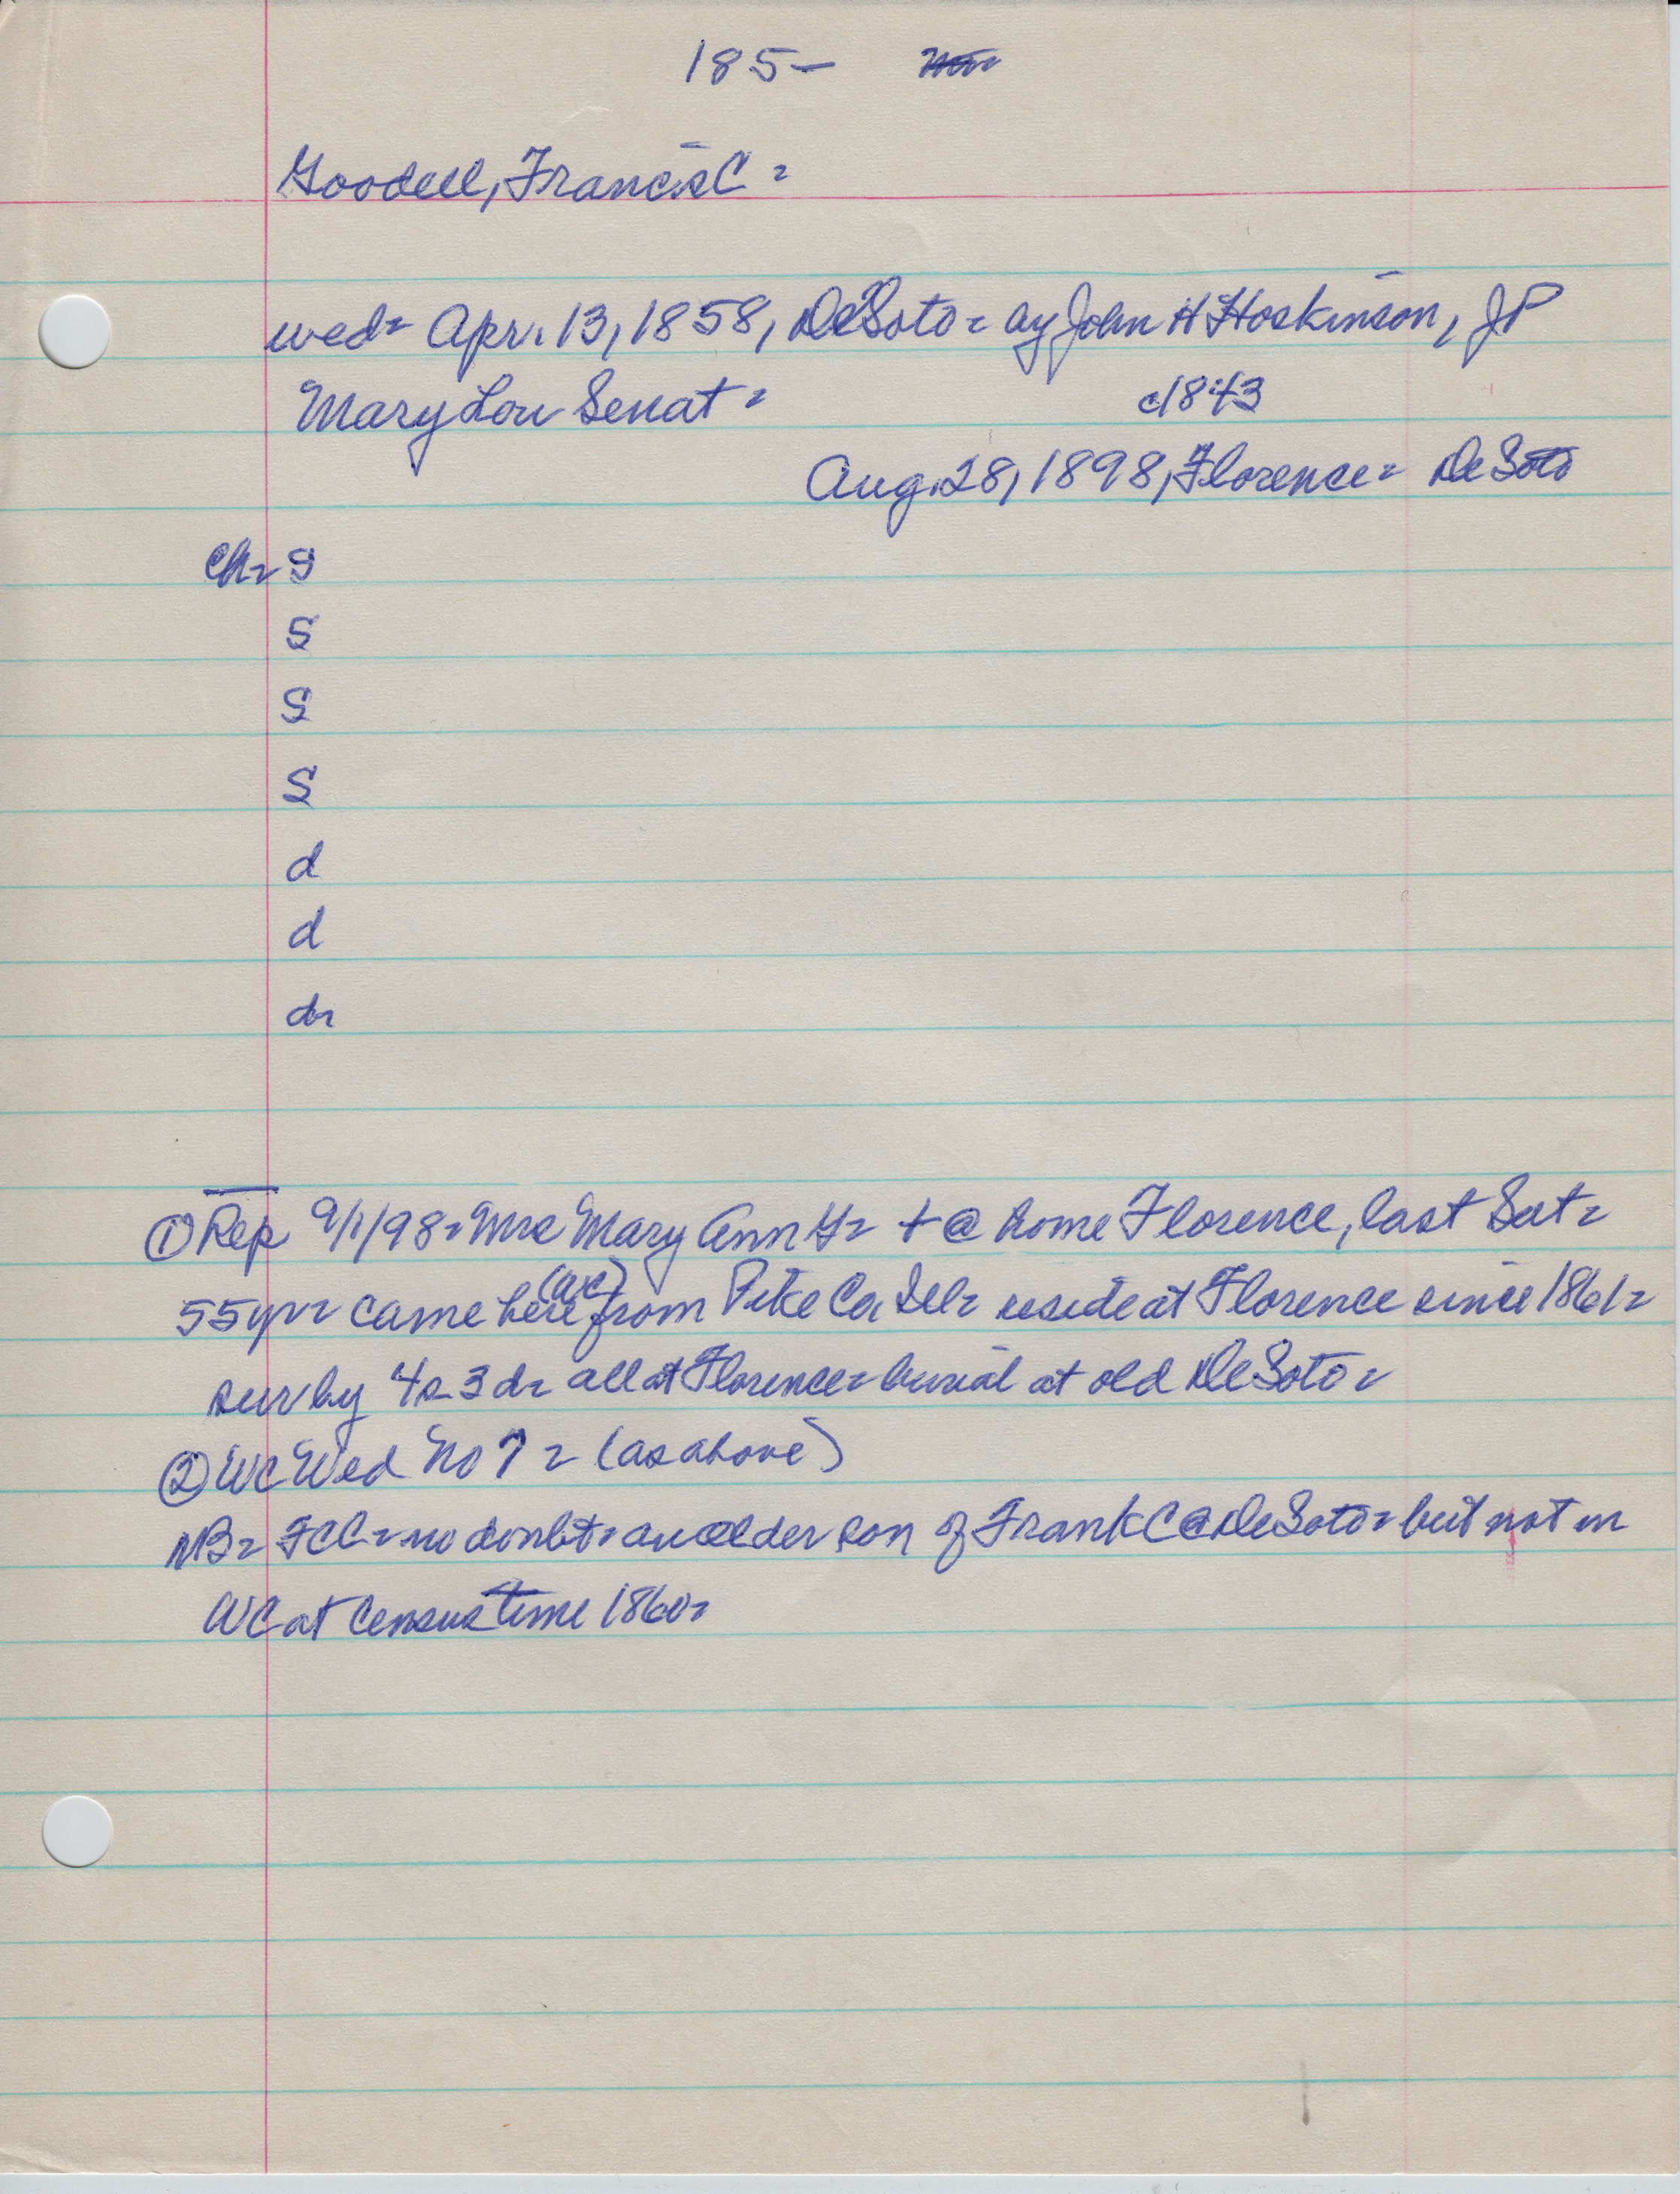 185-
Goodell, Francis C =
wed= Apr. 13, 1858, DeSoto= by John H Hoskinson, JP
Mary Lou Senat = c1843
Aug. 28, 1898, Florence= DeSoto
Ch= S
S
S
S
d
d
d=
① Rep 9/1/98= Mrs Mary Ann G= + @ home Florence, last Sat=
55yr= came here (WC) from Pike Co Ill= reside at Florence since 1861=
sur by 4s 3d= all at Florence= burial at old DeSoto=
② WC Wed No 7 = (as above)
NB= FCG= no doubt= an older son of Frank C @ DeSoto= but not in
WC at Census time 1860=